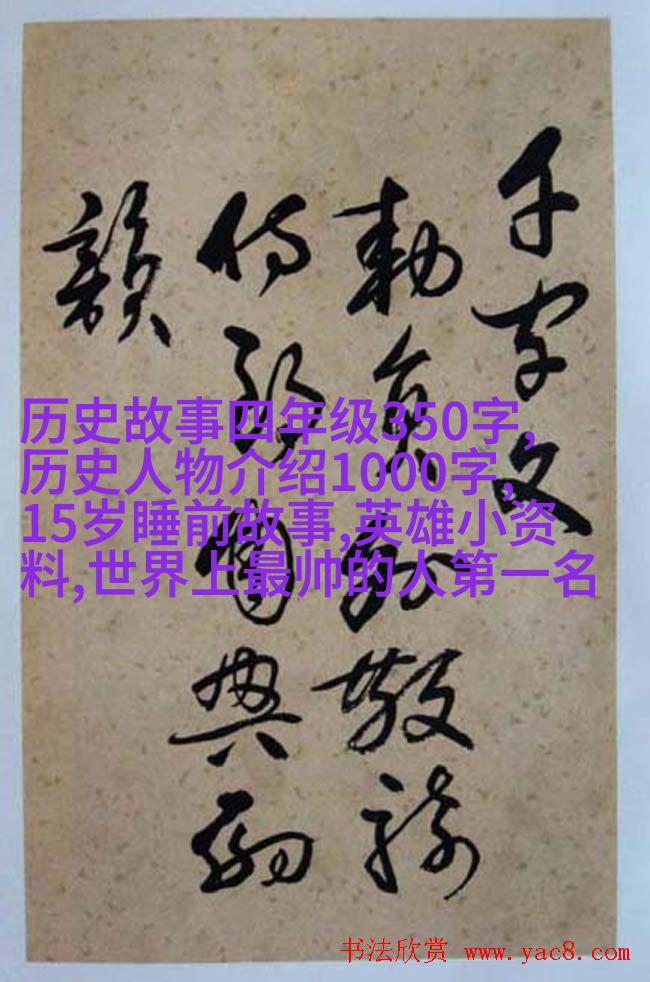 千字文
勅員外散騎
侍郎周興嗣
韻
历史故事四年级350字,
历史人物介绍1000字,
15岁睡前故事,英雄小资
料,世界上最帅的人第一名
书法欣赏 www.yac8.com